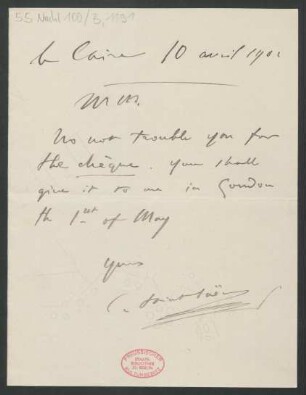 55 Nachl 100/B, 1191
le Caire 10 avril 190
Do not trouble you for
the chèque. You shall
give it to me in London
the 1st of May
Yours
C. Saint-Saëns